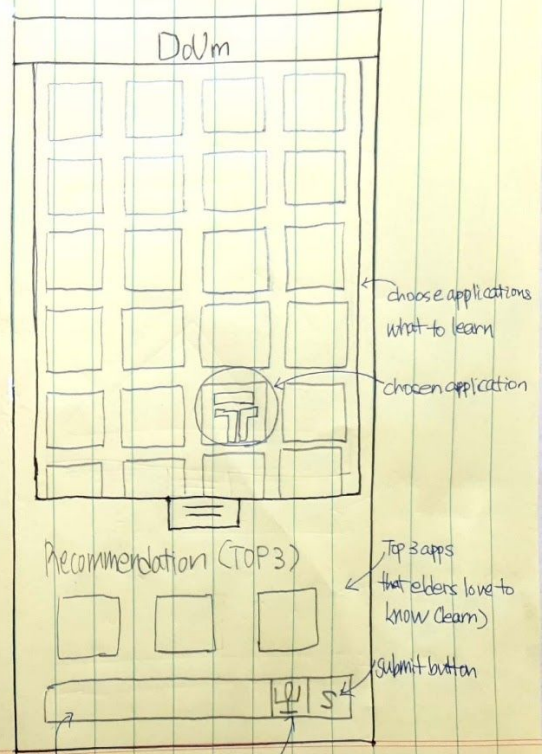 DoUm
choose applications
what to learn
chosen application
Recommendation (TOP3)
Top 3 apps
that elders love to
know (learn)
submit button
S